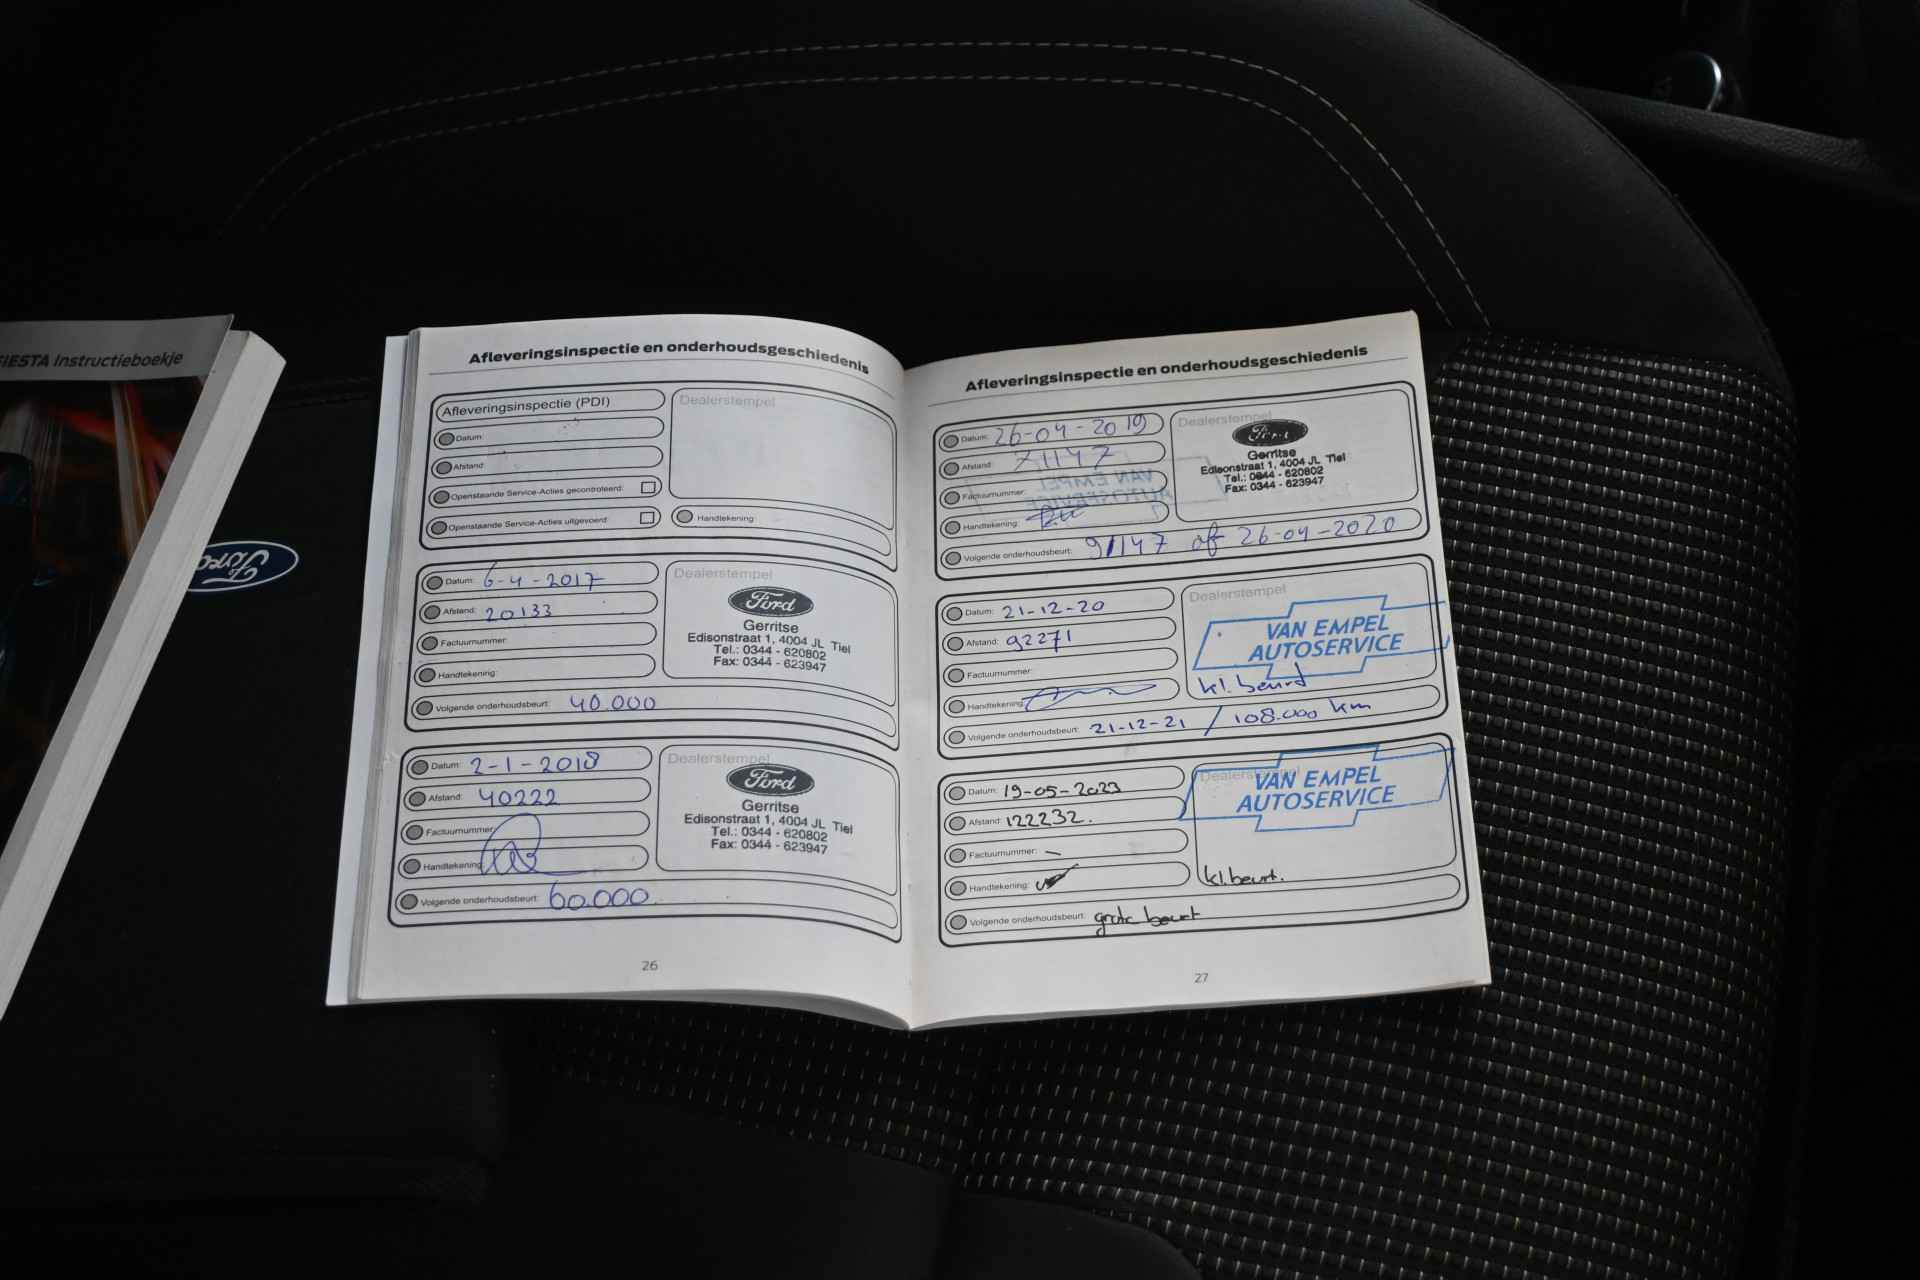 FIESTA Instructieboekje
Ford
Afleveringsinspectie en onderhoudsgeschiedenis
Afleveringsinspectie (PDI)
Datum:
Afstand:
Openstaande Service-Acties gecontroleerd:
Openstaande Service-Acties uitgevoerd:
Dealerstempel
Handtekening:
Datum: 6-4-2017
Afstand: 20133
Factuurnummer:
Handtekening:
Volgende onderhoudsbeurt: 40.000
Dealerstempel
Ford
Gerritse
Edisonstraat 1, 4004 JL Tiel
Tel.: 0344 - 620802
Fax: 0344 - 623947
Datum: 2-1-2018
Afstand: 40222
Factuurnummer:
Handtekening:
Volgende onderhoudsbeurt: 60.000
Dealerstempel
Ford
Gerritse
Edisonstraat 1, 4004 JL Tiel
Tel.: 0344 - 620802
Fax: 0344 - 623947
26
Afleveringsinspectie en onderhoudsgeschiedenis
Datum: 26-04-2019
Afstand: 71147
Factuurnummer:
Handtekening:
Volgende onderhoudsbeurt: 91147 of 26-04-2020
Dealerstempel
Ford
Gerritse
Edisonstraat 1, 4004 JL Tiel
Tel.: 0344 - 620802
Fax: 0344 - 623947
Datum: 21-12-20
Afstand: 92271
Factuurnummer:
Handtekening:
Volgende onderhoudsbeurt: 21-12-21 / 108.000 km
Dealerstempel
VAN EMPEL
AUTOSERVICE
kl. beurt
Datum: 19-05-2023
Afstand: 122232.
Factuurnummer: -
Handtekening:
Volgende onderhoudsbeurt: grote beurt
Dealerstempel
VAN EMPEL
AUTOSERVICE
kl. beurt.
27